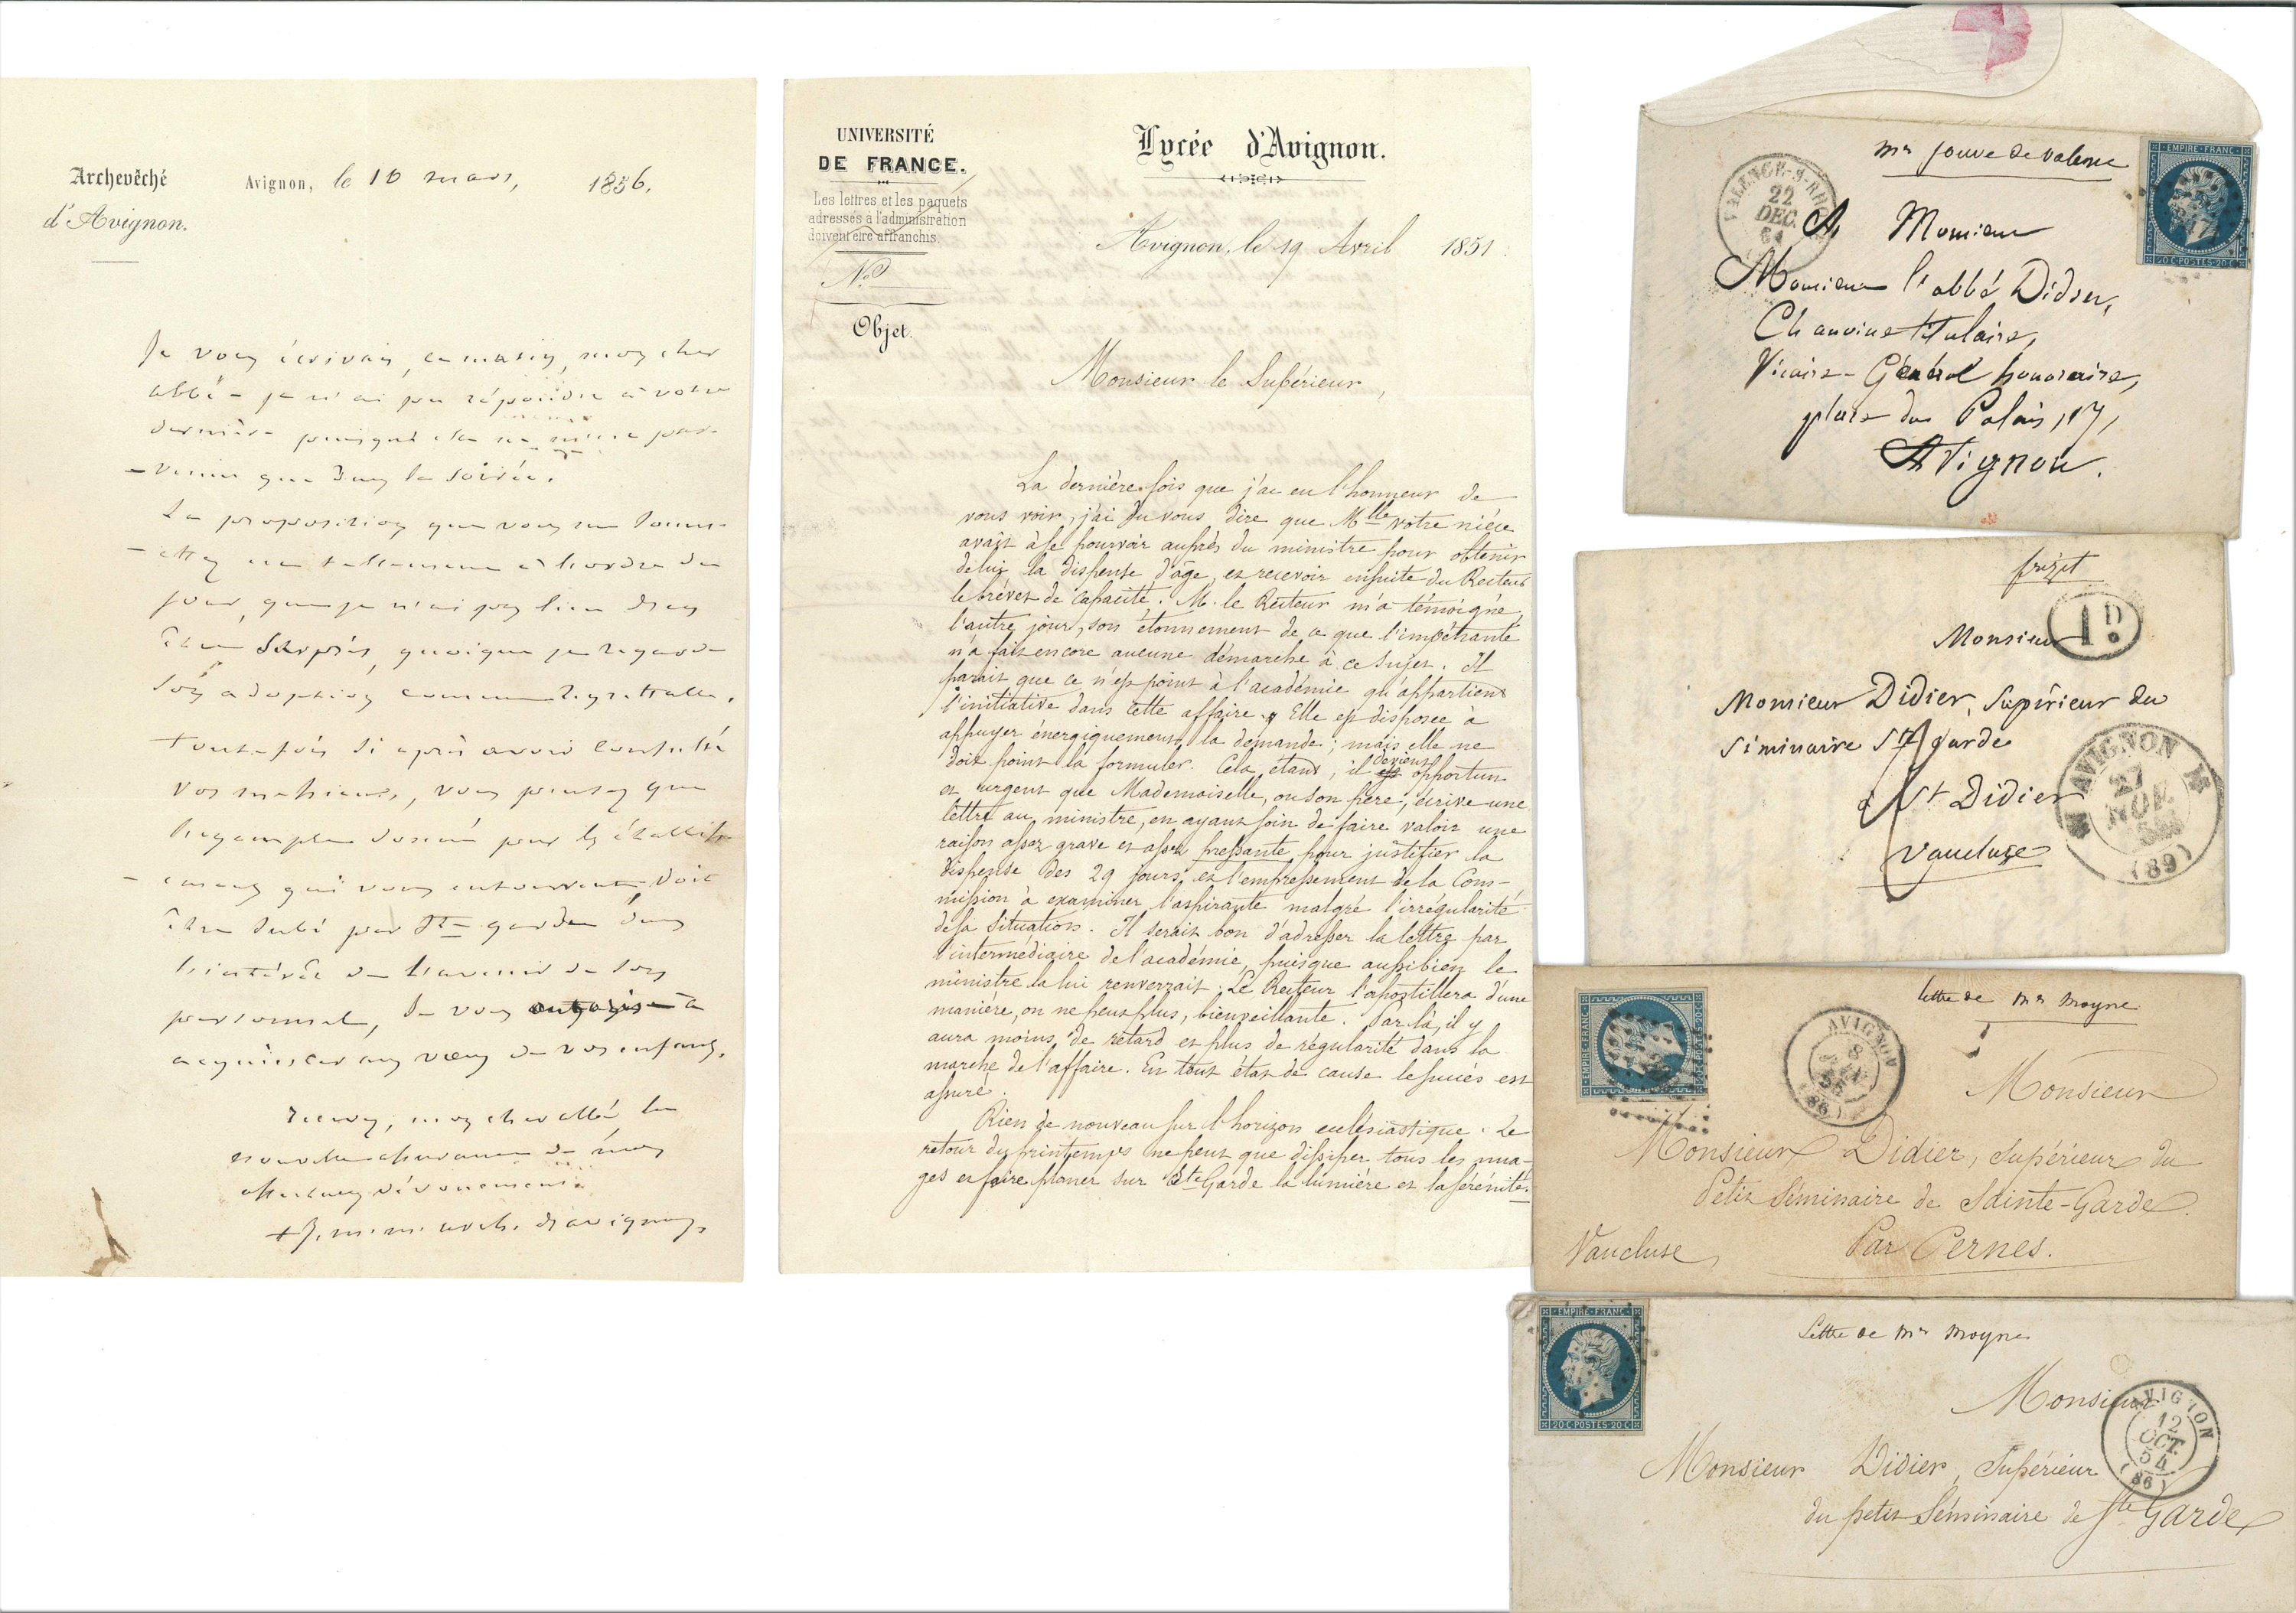 Archevêché
d'Avignon.
Avignon, le 10 mars, 1856.
Je vous écrivais, ce matin, mon cher
abbé - je n'ai pu répondre à votre
dernière puisqu'elle ne m'est par-
-venue que dans la soirée.
La proposition que vous me soum-
-ettez est tellement à l'ordre du
jour, que je n'ai pas lieu d'en
être surpris, quoique je regarde
son adoption comme regrettable.
Toutefois si après avoir consulté
vos messieurs, vous pensez que
l'exemple donné par les établiss-
-ements qui vous entourent doit
être subi par Ste garde dans
l'intérêt de l'avenir de son
personnel, je vous autorise à
acquiescer aux vœux de vos enfants.
Recevez, mon cher abbé, la
nouvelle assurance de mon
affectueux dévouement.
+ J. m. m. arch. d'avignon.
UNIVERSITÉ
DE FRANCE.
Les lettres et les paquets
adressés à l'administration
doivent être affranchis
No
Objet.
Lycée d'Avignon.
Avignon, le 19 Avril 1851
Monsieur le Supérieur,
La dernière fois que j'ai eu l'honneur de
vous voir, j'ai du vous dire que Mlle votre nièce
avait à se pourvoir auprès du ministre pour obtenir
de lui la dispense d'âge, et recevoir ensuite du Recteur
le brévet de capacité. M. le Recteur m'a témoigné,
l'autre jour, son étonnement de ce que l'impétrante
n'a fait encore aucune démarche à ce sujet. Il
parait que ce n'est point à l'académie qu'appartient
l'initiative dans cette affaire. Elle est disposée à
appuyer énergiquement la demande; mais elle ne
doit point la formuler. Cela étant, il devient opportun
et urgent que Mademoiselle, ou son père, écrive une
lettre au ministre, en ayant soin de faire valoir une
raison assez grave et assez pressante pour justifier la
dispense des 29 jours, et l'empressement de la Com-
mission à examiner l'aspirante malgré l'irrégularité
de sa situation. Il serait bon d'adresser la lettre par
l'intermédiaire de l'académie, puisque aussi bien le
ministre la lui renverrait. Le Recteur l'apostillera d'une
manière, on ne peut plus, bienveillante. Par là, il y
aura moins de retard et plus de régularité dans la
marche de l'affaire. En tout état de cause le succès est
assuré.
Rien de nouveau sur l'horizon ecclésiastique. Le
retour du printemps ne peut que dissiper tous les nua-
ges et faire planer sur Ste Garde la lumière et la sérénité.
mr jouve de valence
EMPIRE FRANC
20 C POSTES 20 C
VALENCE-S-RHONE
22
DEC.
61
A Monsieur
Monsieur l'abbé Didier,
Chanoine titulaire,
Vicaire-Général honoraire,
place du Palais, 17,
Avignon.
frizet
1D
Monsieur
Monsieur Didier, Supérieur du
Séminaire Ste garde
à St Didier
Vaucluse
AVIGNON
27
NOV.
(89)
EMPIRE FRANC
20 C POSTES 20 C
lettre de mr moyne
AVIGNON
8
55
(86)
Monsieur
Monsieur Didier, Supérieur du
Petit Séminaire de Sainte-Garde.
Par Pernes.
Vaucluse
EMPIRE FRANC
20 C POSTES 20 C
Lettre de mr moyne
Monsieur
AVIGNON
12
OCT.
54
(86)
Monsieur Didier, Supérieur
du petit Séminaire de Ste Garde